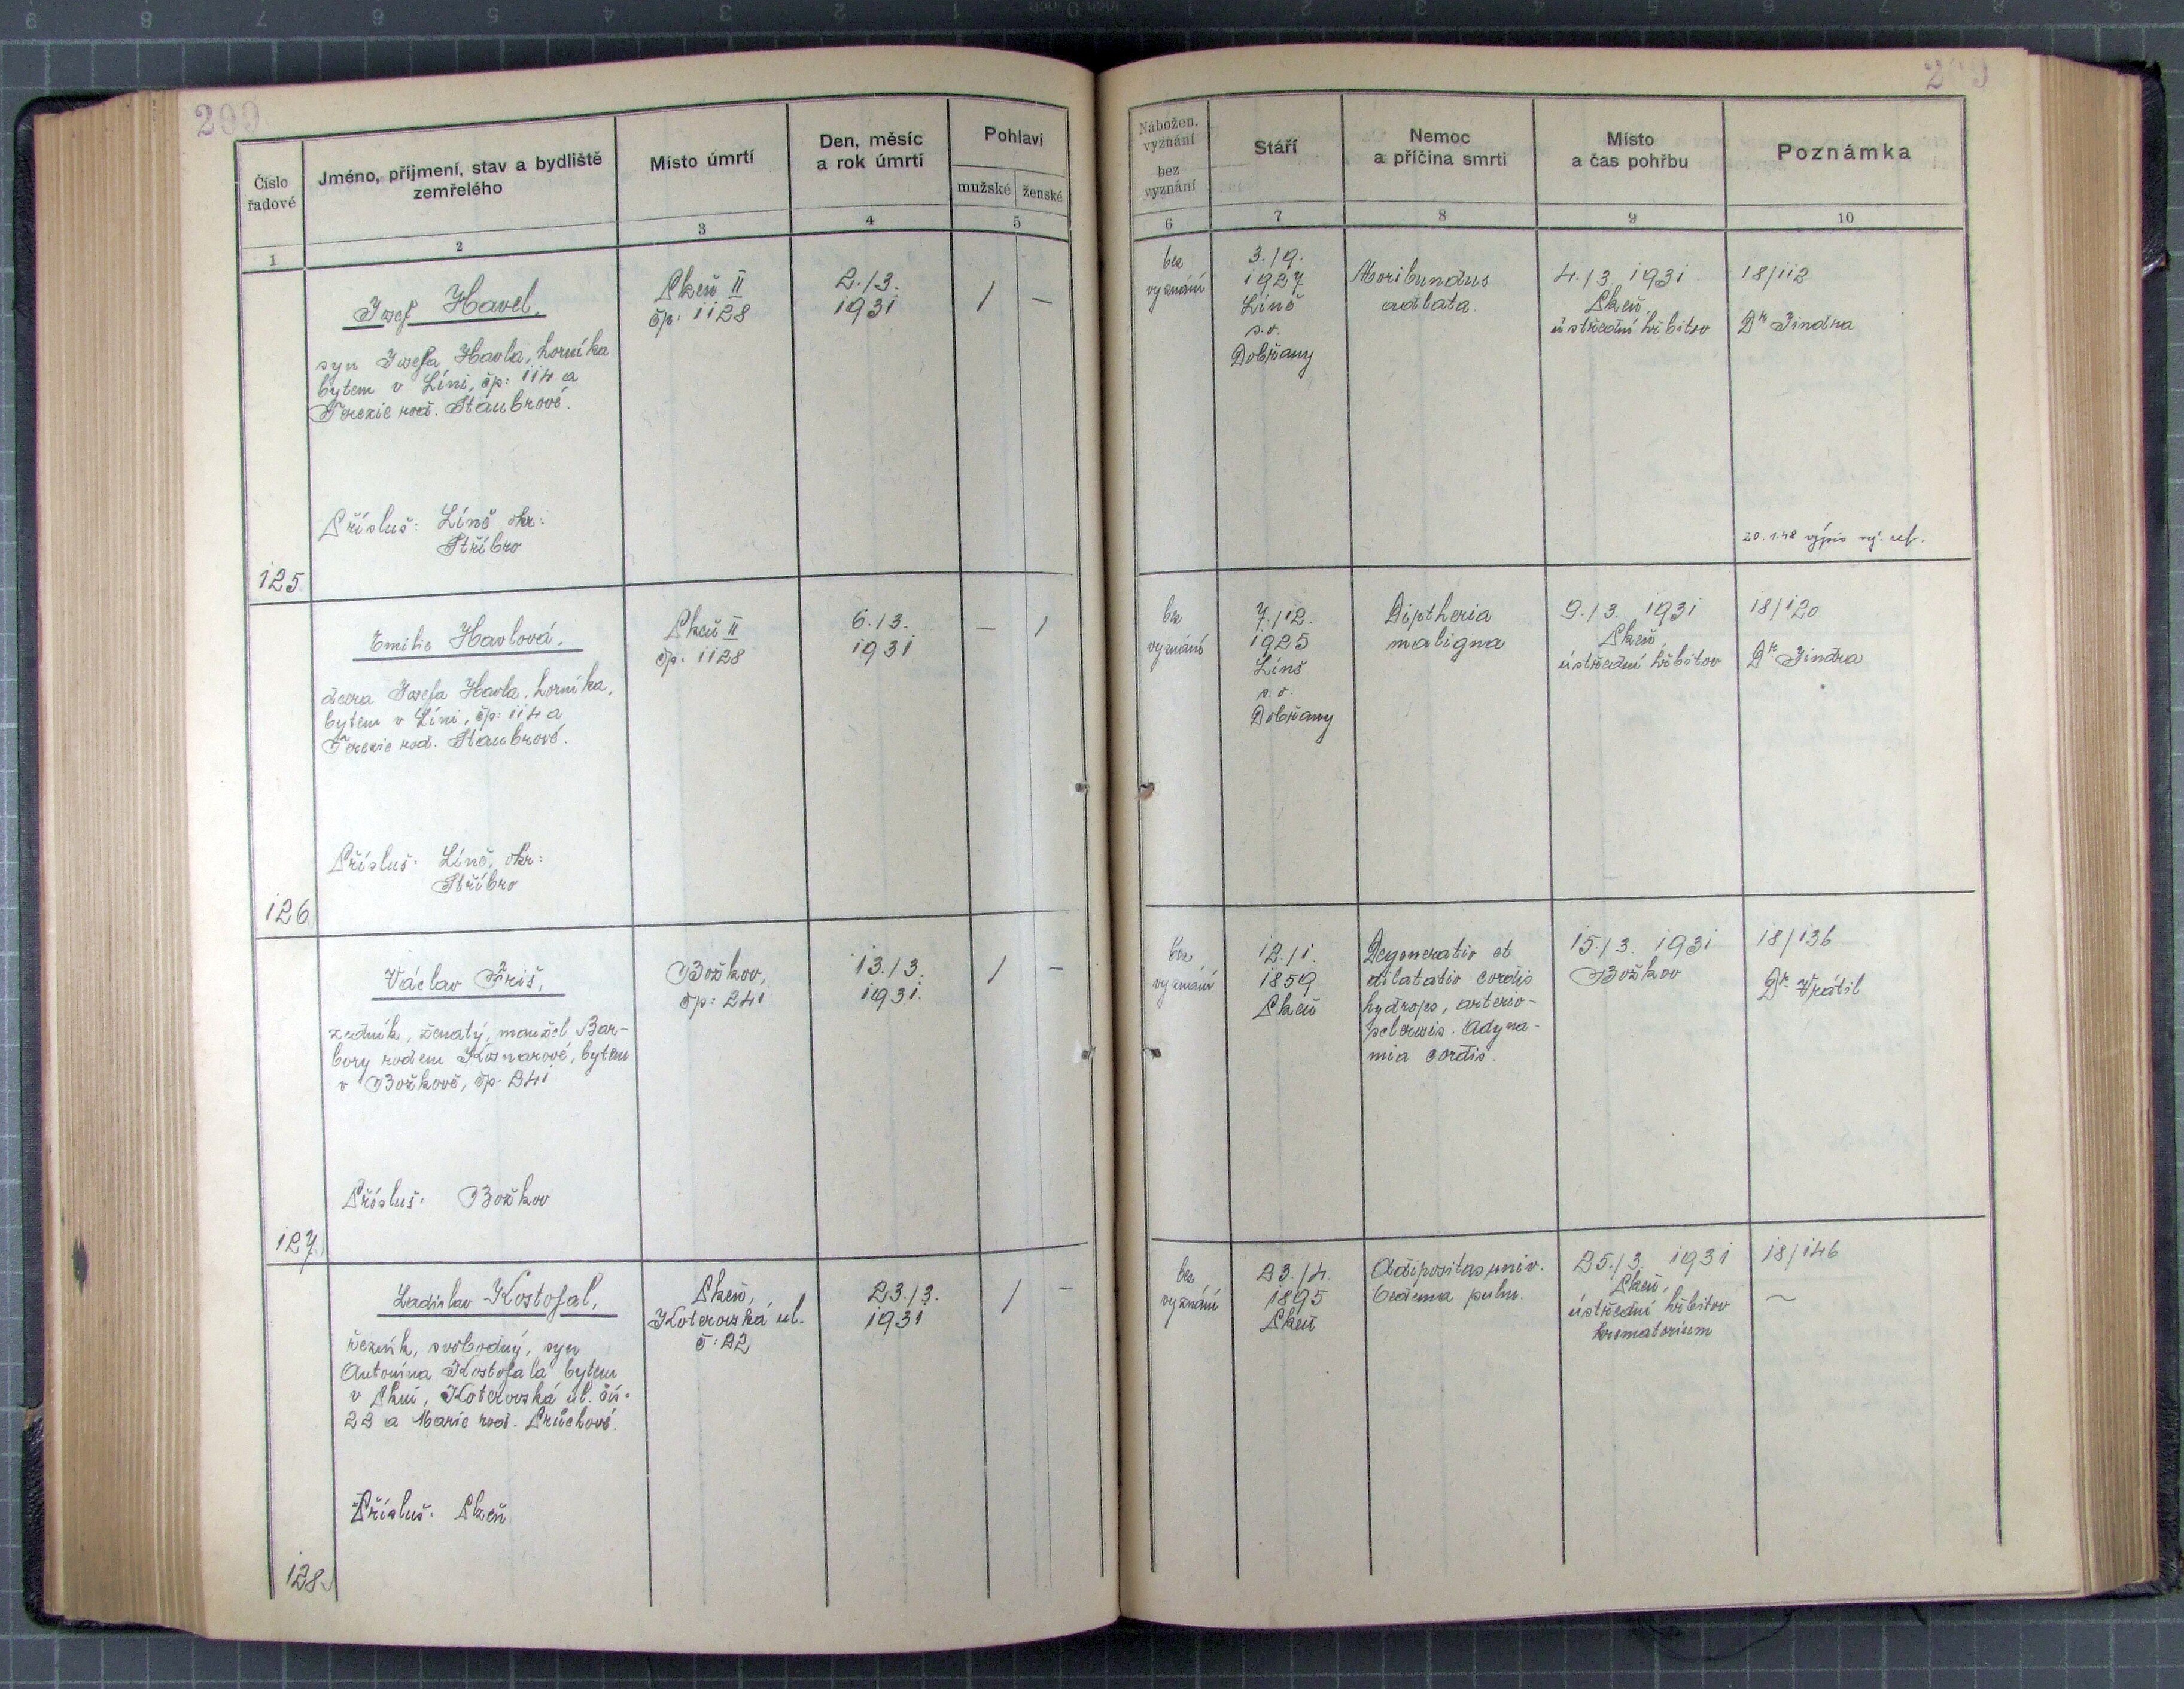 209
Číslo
řadové
Jméno, příjmení, stav a bydliště
zemřelého
Místo úmrtí
Den, měsíc
a rok úmrtí
Pohlaví
mužské ženské
1 2 3 4 5
Josef Havel,
syn Josefa Havla, horníka
bytem v Líni, čp: 114 a
Terezie roz. Štaubrové.
Přísluš: Líně okr:
Stříbro
125
Plzeň II
čp: 1128
2./3.
1931
/ —
Emilie Havlová,
dcera Josefa Havla, horníka,
bytem v Líni, čp: 114 a
Terezie roz. Štaubrové.
Přísluš. Líně, okr:
Stříbro
126
Plzeň II
čp. 1128
6./3.
1931
— /
Václav Friš,
zedník, ženatý, manžel Bar-
bory rodem Kosnarové, bytem
v Božkově, čp. 241
Přísluš. Božkov
127
Božkov,
čp: 241
13./3.
1931.
/ —
Ladislav Kostofal,
řezník, svobodný, syn
Antonína Kostofala bytem
v Plzni, Koterovská ul. čís.
22 a Marie roz. Průchové.
Přísluš. Plzeň
128
Plzeň,
Koterovská ul.
č: 22
23./3.
1931
/ —
Nábožen.
vyznání
bez
vyznání
Stáří
Nemoc
a příčina smrti
Místo
a čas pohřbu
Poznámka
6 7 8 9 10
bez
vyznání
3./9.
1927
Líně
s.o.
Dobřany
Moribundus
adlata.
4./3. 1931
Plzeň,
ústřední hřbitov
18/112
Dr Jindra
20.1.48 výpis
bez
vyznání
7./12.
1925
Líně
s.o.
Dobřany
Diptheria
maligna
9./3. 1931
Plzeň,
ústřední hřbitov
18/120
Dr Jindra
bez
vyznání
12./1.
1859
Plzeň
Degeneratio et
dilatatio cordis
hydrops, arterio-
sclerosis. Adyna-
mia cordis.
15./3. 1931
Božkov
18/136
Dr Vrátil
bez
vyznání
23./4.
1895
Plzeň
Adipositas univ.
Oedema pulm.
25./3. 1931
Plzeň,
ústřední hřbitov
krematorium
18/146
~